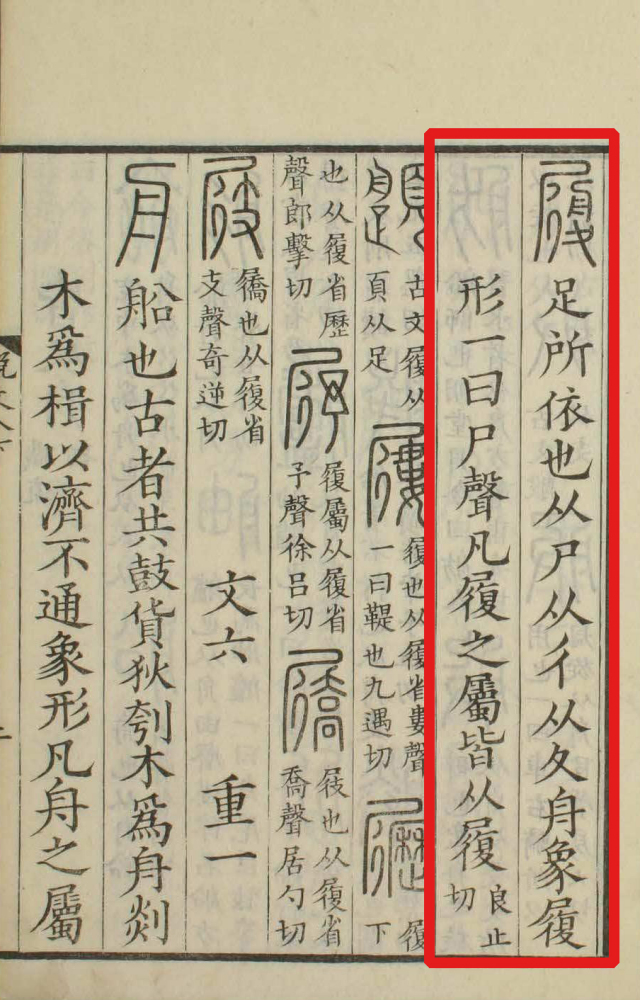 履足所依也从尸从彳从夊舟象履
形一曰尸聲凡履之屬皆从履良止切
古文履从頁从足屨履也从履省婁聲一曰鞮也九遇切履下
也从履省歷聲郎擊切履屬从履省予聲徐呂切屩屐也从履省喬聲居勺切
屐屩也从履省支聲奇逆切文六重一
舟船也古者共鼓貨狄刳木爲舟剡
木爲楫以濟不通象形凡舟之屬